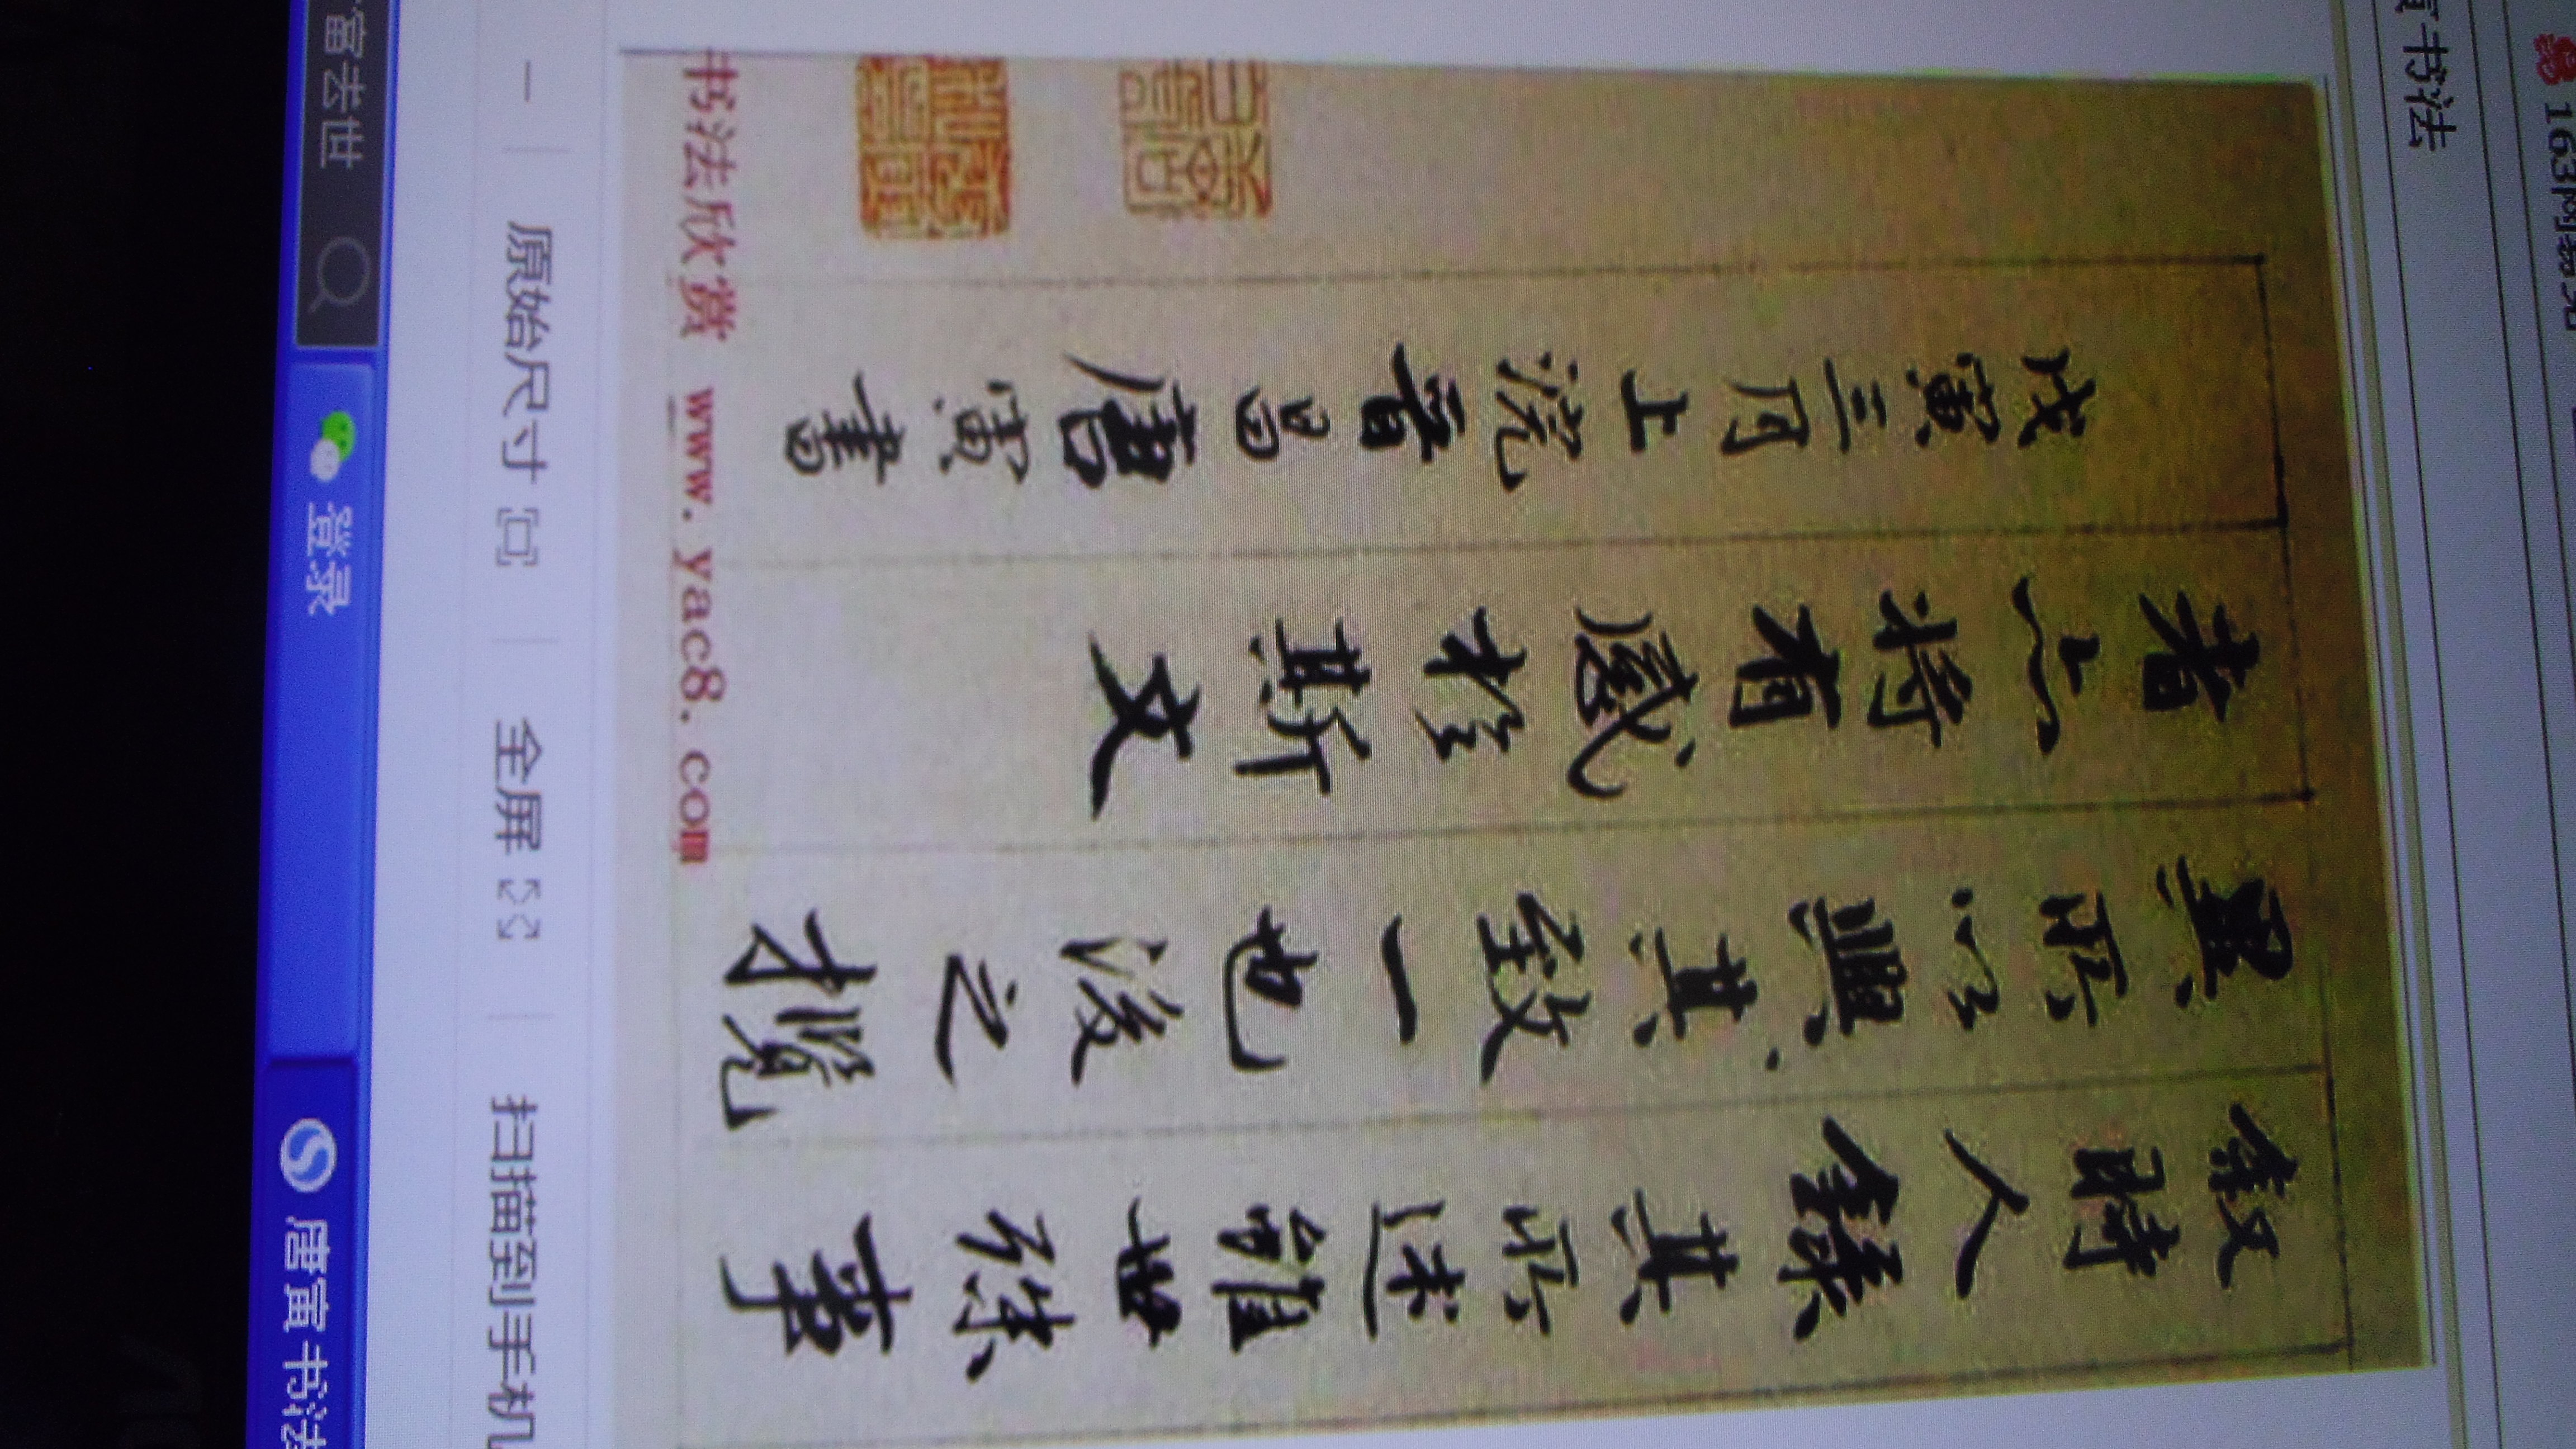 163网易免
寅书法
叙時人錄其所述雖世殊事
異所以興其致一也後之攬
者亦将有感於斯文
戊寅三月上浣晋昌唐寅書
书法欣赏 www.yac8.com
原始尺寸 全屏 扫描到手机
富去世 登录 唐寅书法